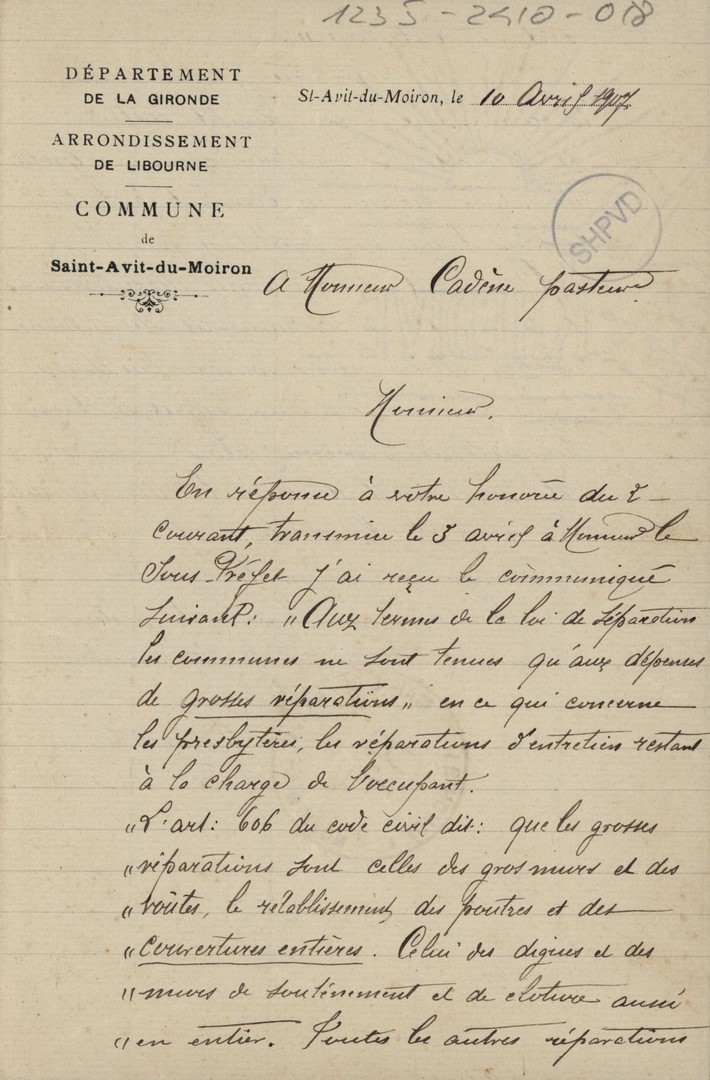 1235-2410-018
DÉPARTEMENT
DE LA GIRONDE
St-Avit-du-Moiron, le 10 Avril 1907
ARRONDISSEMENT
DE LIBOURNE
COMMUNE
de
Saint-Avit-du-Moiron
SHPVD
A Monsieur Cadène pasteur.
Monsieur,
En réponse à votre honorée du 2
courant, transmise le 3 avril à Monsieur le
Sous-Préfet j'ai reçu le communiqué
suivant: "Aux termes de la loi de séparation
les communes ne sont tenues qu'aux dépenses
de grosses réparations" en ce qui concerne
les presbytères, les réparations d'entretien restant
à la charge de l'occupant.
"L'art: 606 du code civil dit: que les grosses
"réparations sont celles des gros murs et des
"voûtes, le rétablissement des poutres et des
"couvertures entières. Celui des digues et des
"murs de soutènement et de cloture aussi
"en entier. Toutes les autres réparations